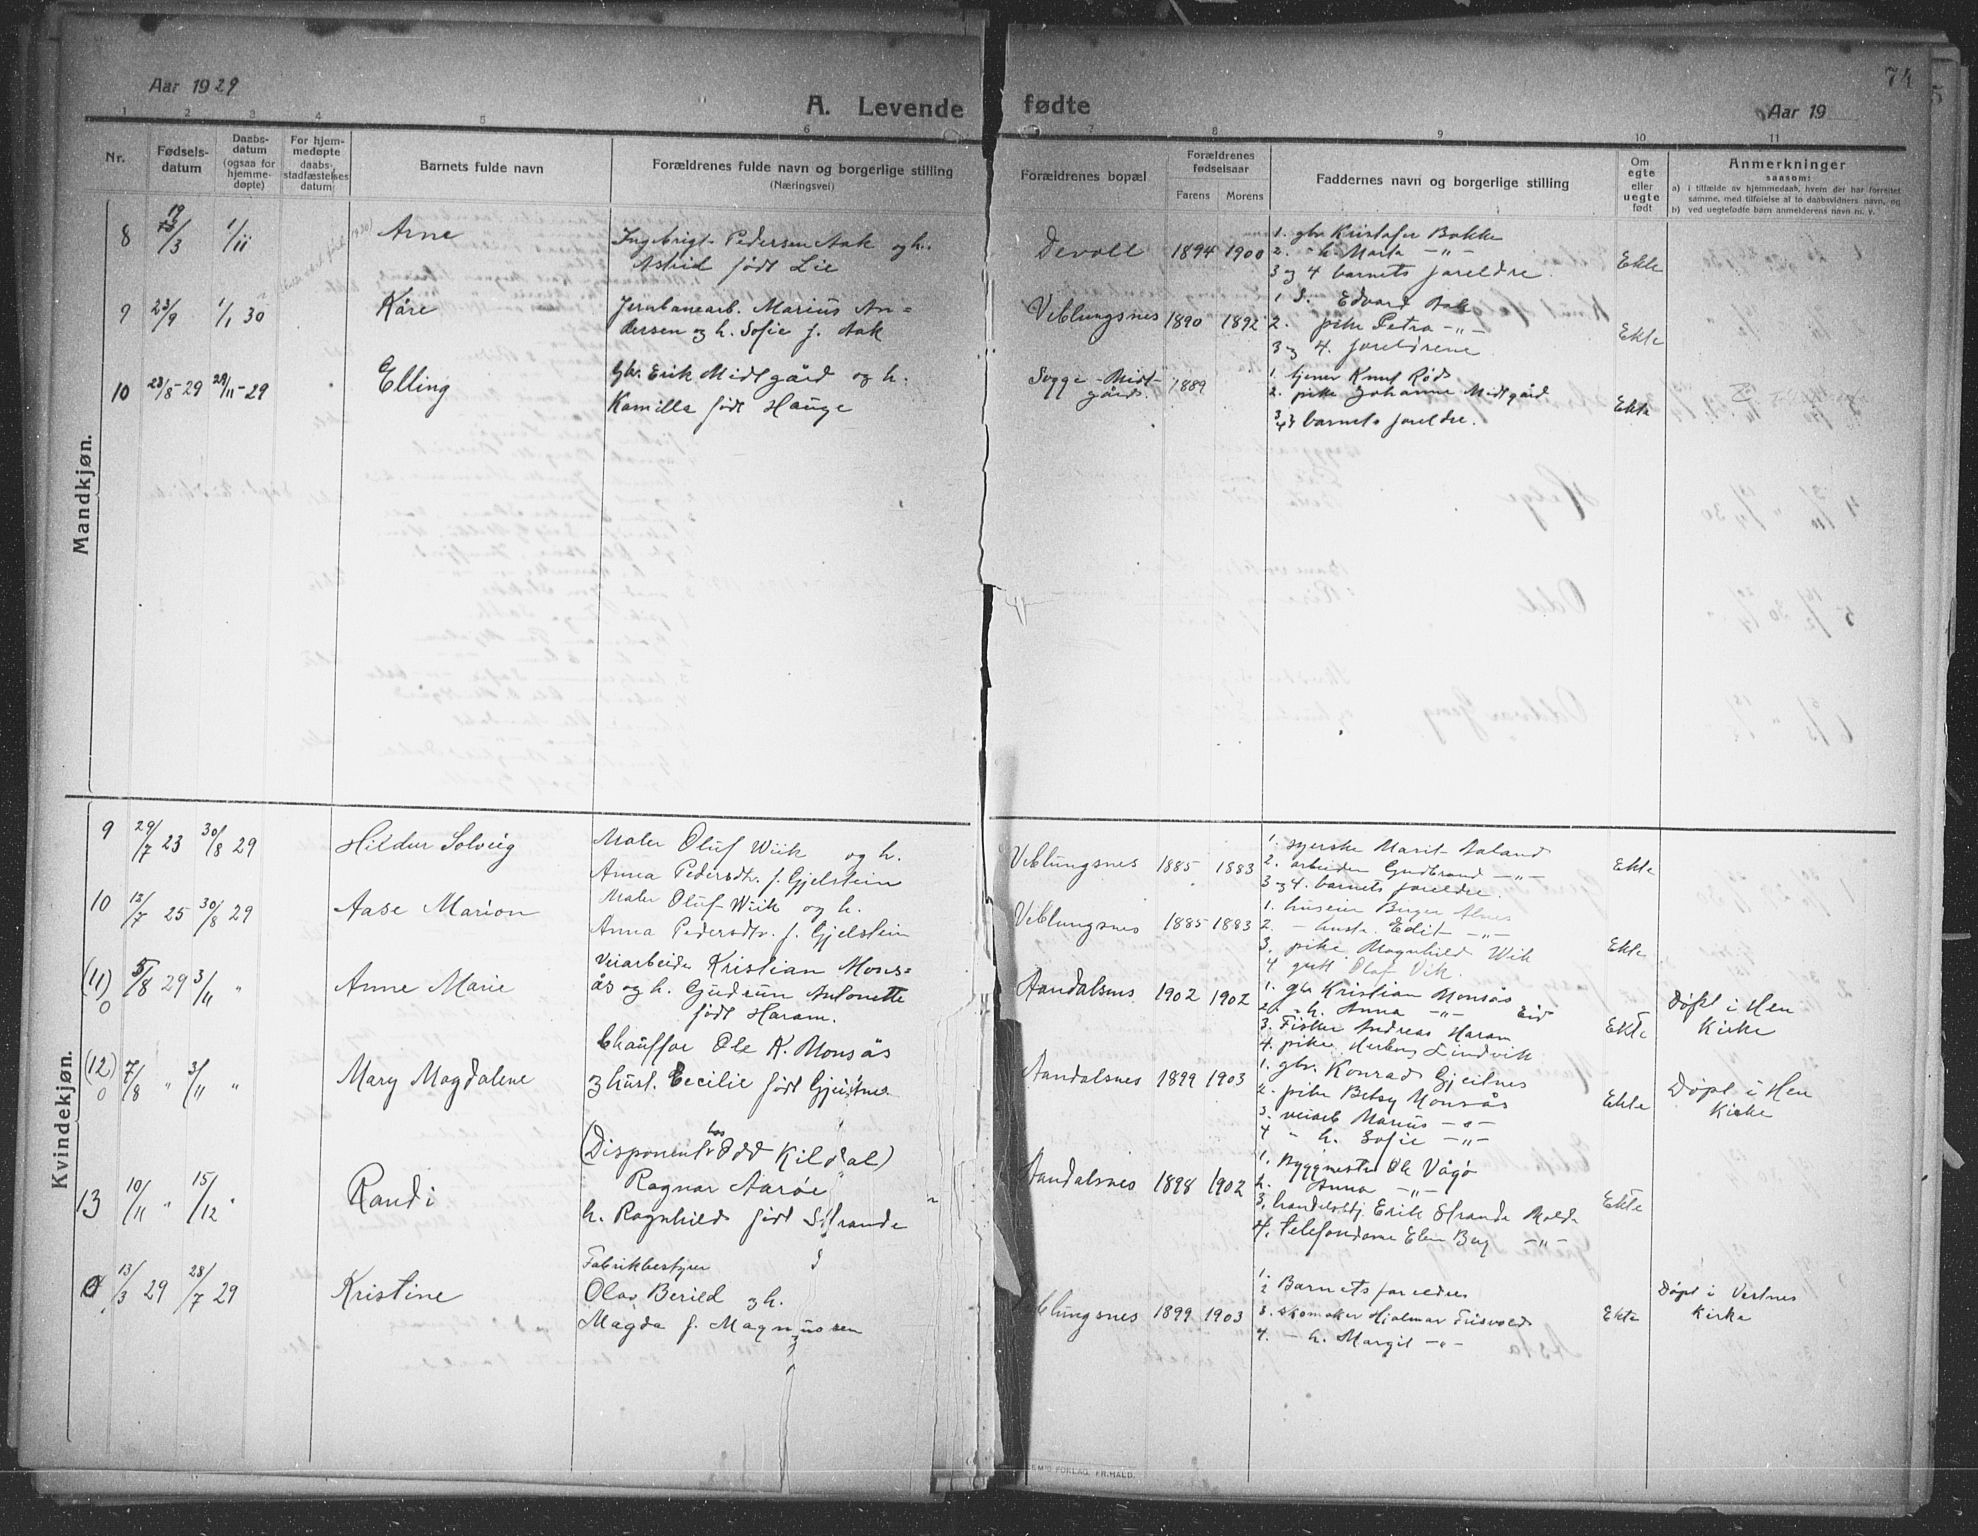 Aar 1929
A. Levende fødte
Aar 19
74
1 2 3 4 5 6 7 8 9 10 11
Nr.
Fødselsdatum
Daabsdatum (ogsaa for hjemmedøpte)
For hjemmedøpte daabsstadfæstelsesdatum
Barnets fulde navn
Forældrenes fulde navn og borgerlige stilling
(Næringsvei)
Forældrenes bopæl
Forældrenes fødselsaar
Farens Morens
Faddernes navn og borgerlige stilling
Om egte eller uegte født
Anmerkninger
saasom:
a) i tilfælde av hjemmedaab, hvem der har forrettet samme, med tilføielse af to daabsvidners navn, og
b) ved uegtefødte barn anmelderens navn m. v.
Mandkjøn.
8 19/3 1/11 Arne
Ingebrigt Pedersen Aak og h.
Astrid født Lie
Devoll 1894 1900
1. gbr Kristofer Bakke
2. - h. Marta -"-
3 og 4 barnets foreldre
Ekte
9 23/9 1/1 30 Kåre
Jernbanearb. Marius An=
dersen og h. Sofie f. Aak
Veblungsnes 1890 1892
1 Edvard Aak
2. pike Petra -"-
3 og 4. foreldrene
Ekte
10 23/8-29 29/11-29 Elling
Gbr. Erik Midtgård og h.
Kamilla født Hauge
Sogge-Midt-
gård. 1889
1. tjener Knut Rød
2. pike Johanne Midtgård
3/4 barnets foreldre.
Ekte
Kvindekjøn.
9 29/7 23 30/8 29 Hildur Solveig
Maler Oluf Wiik og h.
Anna Pedersdtr. f. Gjelstein
Veblungsnes 1885 1883
1. syerske Marit Aaland
2. arbeider Gudbrand -"-
3 og 4. barnets foreldre.
Ekte
10 12/7 25 30/8 29 Aase Marion
Maler Oluf Wiik og h.
Anna Pedersdtr. f. Gjelstein
Veblungsnes 1885 1883
1. huseier Birger Alnes
2. - hustr. Edit -"-
3. pike Magnhild Wik
4. gutt Olaf Vik.
Ekte
(11) 0 5/8 29 3/11 " Anne Marie
Veiarbeider Kristian Mons=
ås og h. Gudrun Antonette
født Haram.
Aandalsnes 1902 1902
1. gbr Kristian Monsås
2. - h. Anna -"- Eid
3. Fisker Andreas Haram
4. pike Herborg Lindvik
Ekte
Døpt i Hen
Kirke
(12) 0 7/8 " 3/11 " Mary Magdalene
Chauffør Ole K. Monsås
og hust. Cecilie født Gjeitnes
Aandalsnes 1899 1903
1. gbr. Konrad Gjeitnes
2. pike Betsy Monsås
3. veiarb Marius -"-
4 " h. Sofie -"-
Ekte
Døpt i Hen
Kirke
13 10/11 " 15/12 " Randi
(Disponent hos Odd Kildal)
Ragnar Aarøe
h. Ragnhild født Strande
Aandalsnes 1898 1902
1. Byggmester Ole Vågø
2. Anna -"-
3. handelsbtj Erik Strande Molde
4. telefondame Elen Berg -"-
Ekte
0 13/3 29 28/7 29 Kristine
Fabrikbestyrer
Olav Berild og h.
Magda f. Magnussen
Veblungsnes 1899 1903
1. 2 Barnets foreldre
3. skomaker Hjalmar Frisvold
4. - h. Margit -"-
Ekte
Døpt i Vestnes
Kirke
FORLAG, FR.HALD.